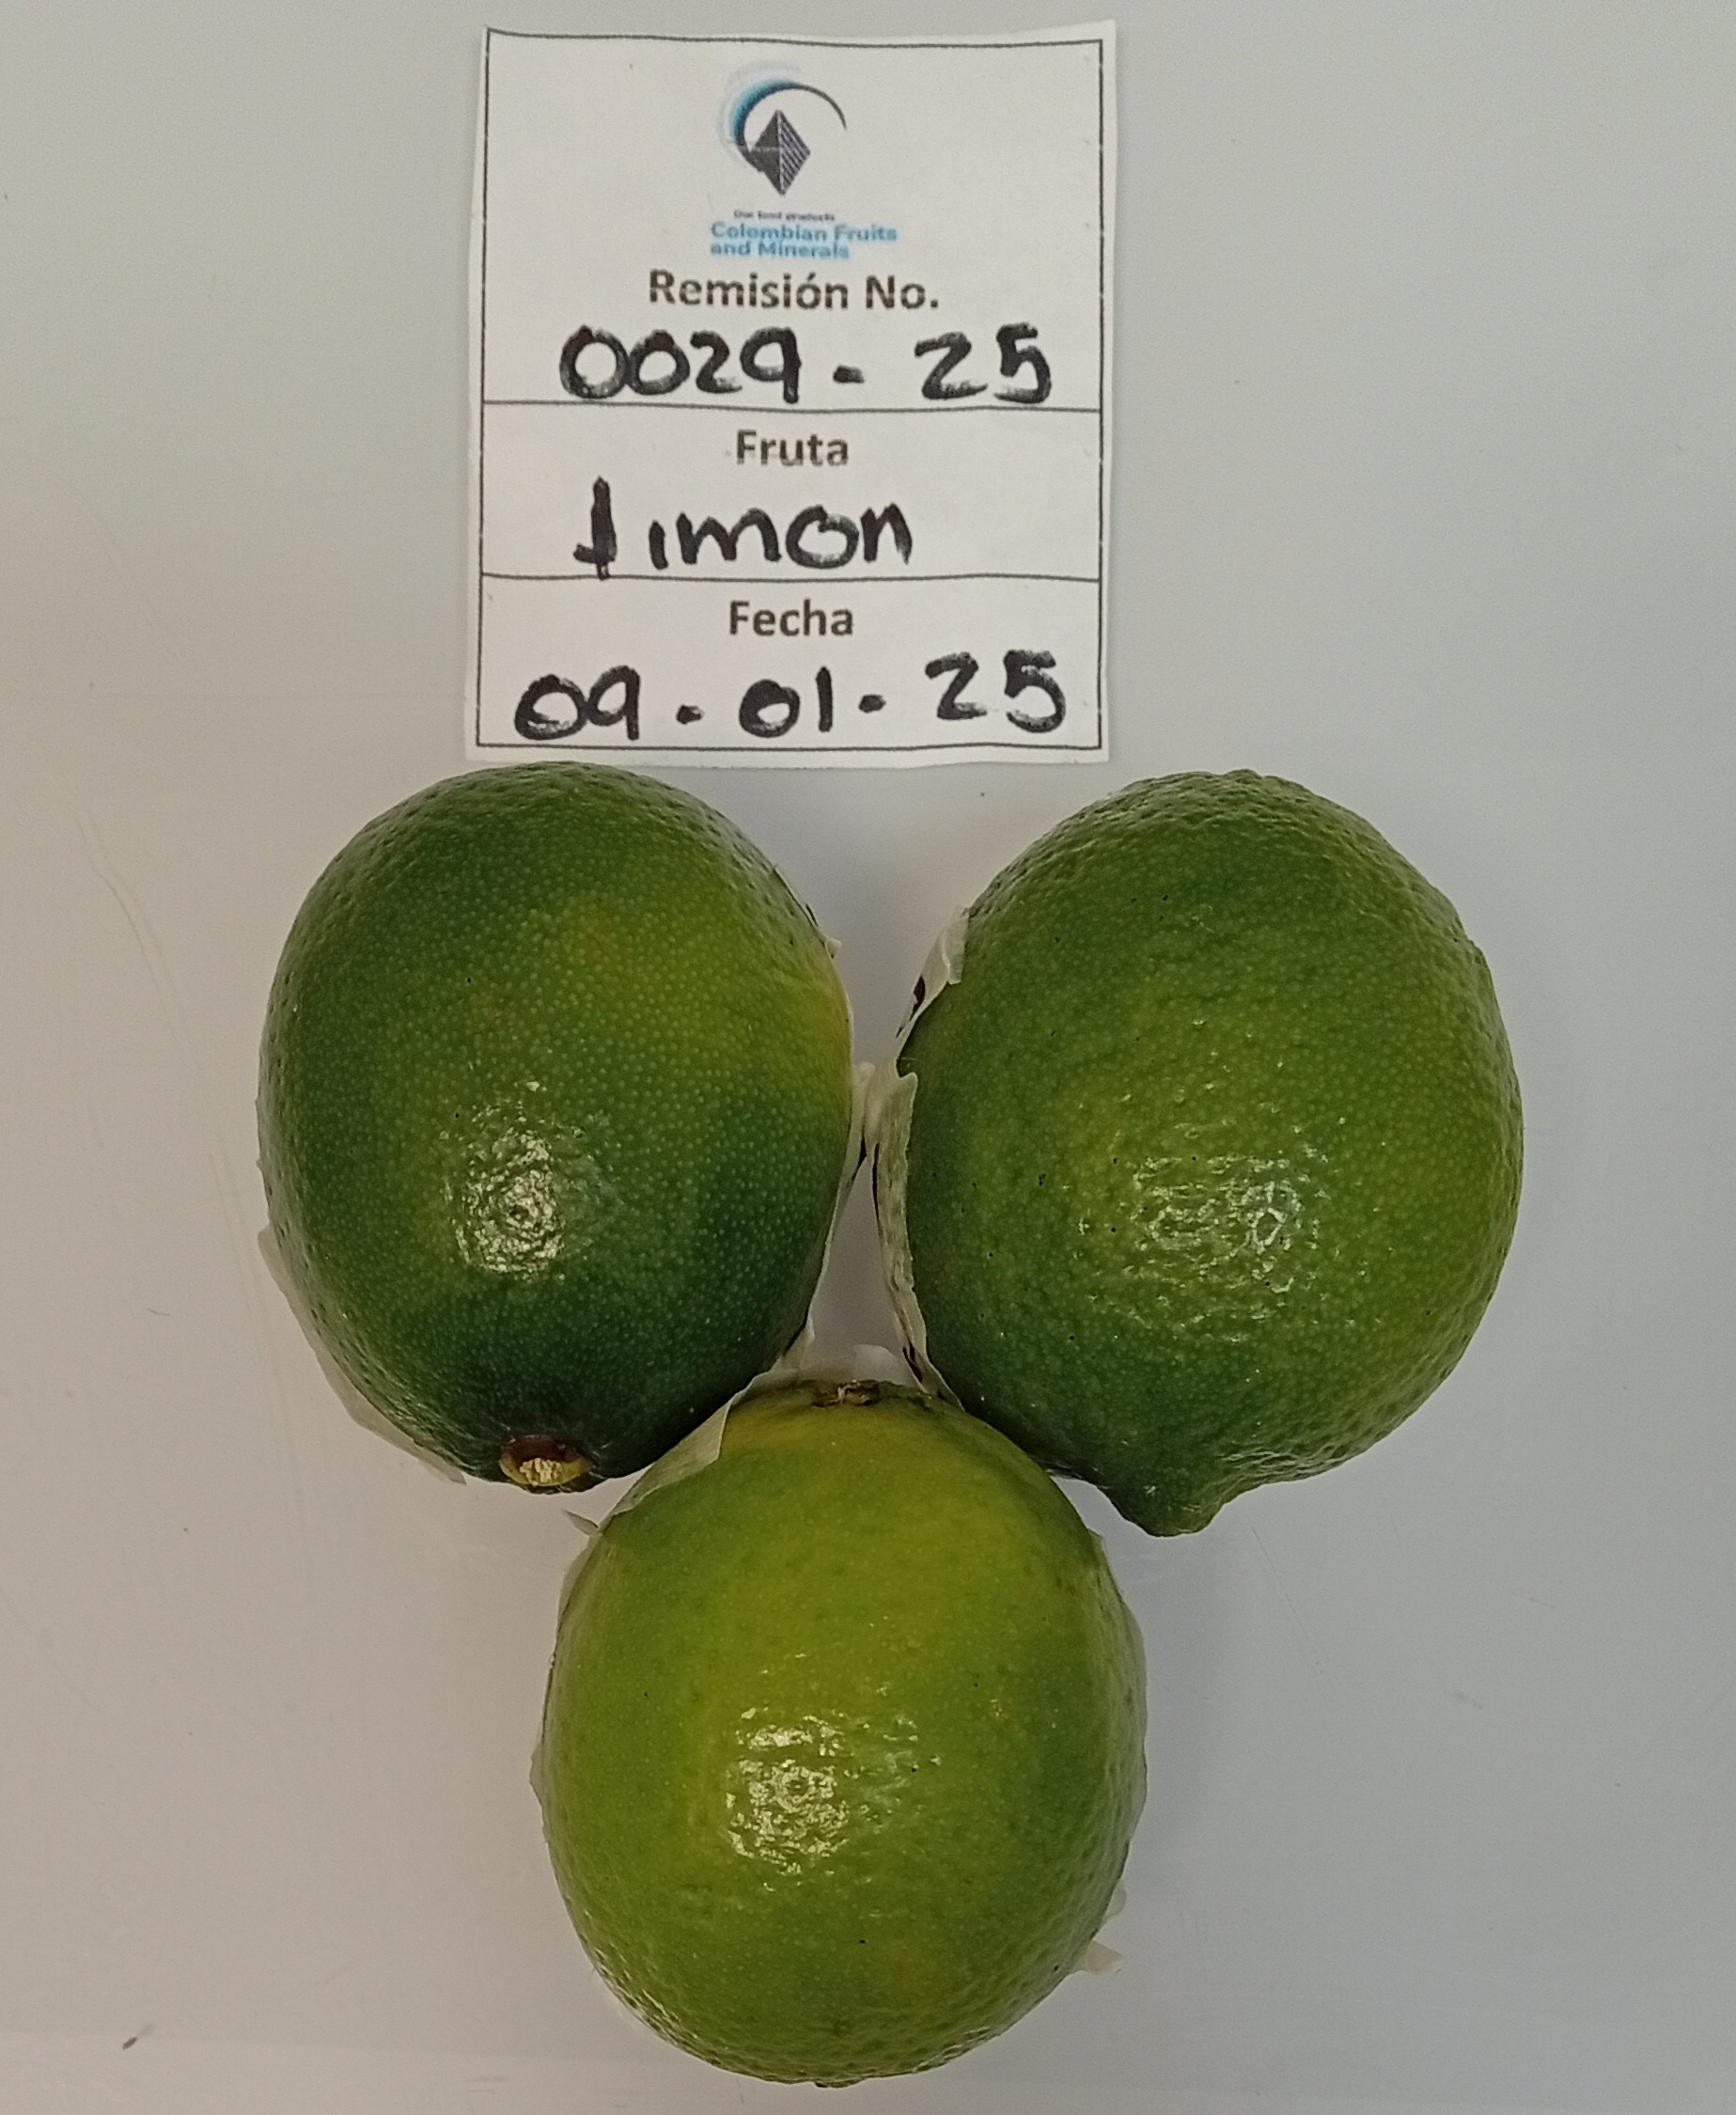 Our food products
Colombian Fruits
and Minerals
Remisión No.
0029 - 25
Fruta
Limon
Fecha
09 - 01 - 25